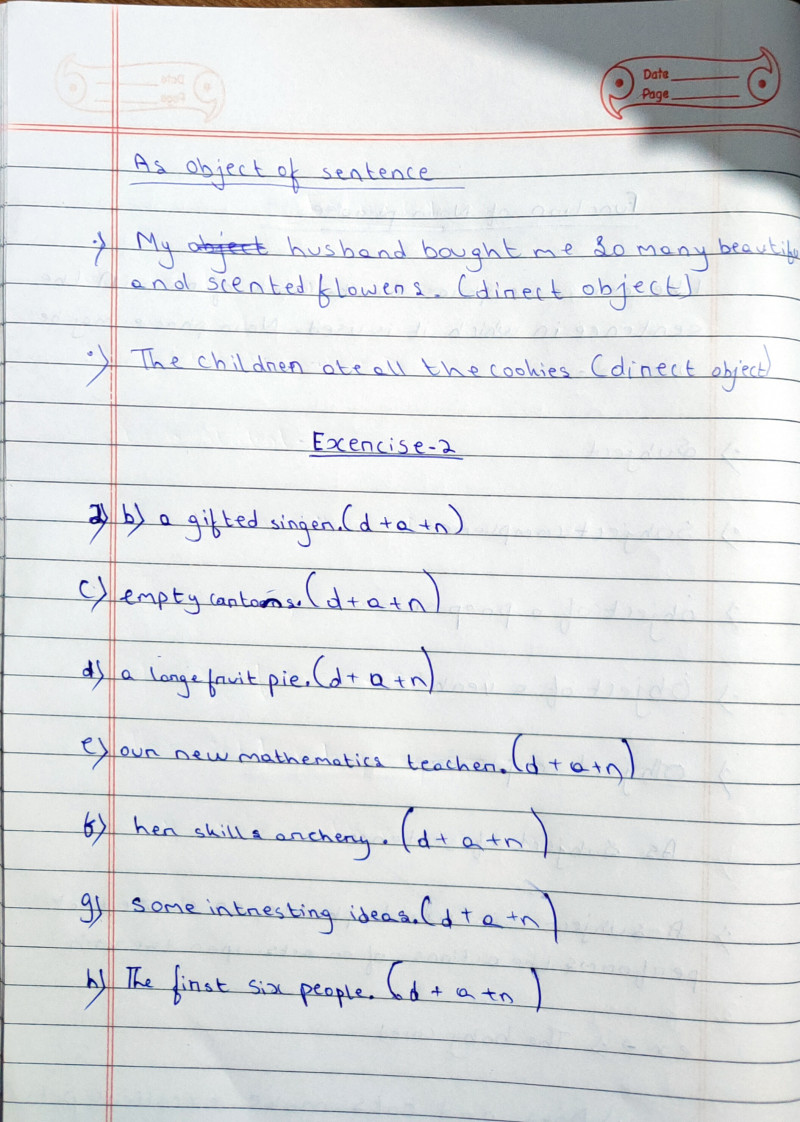 Date
Page
As object of sentence
·) My object husband bought me so many beautifu
and scented flowers. (direct object)
·) The children ate all the cookies (direct object)
Exercise-2
b) a gifted singer. (d+a+n)
c) empty cartons. (d+a+n)
d) a large fruit pie. (d+a+n)
e) our new mathematics teacher. (d+a+n)
f) her skills archery. (d+a+n)
g) some intresting ideas. (d+a+n)
h) The first six people. (d+a+n)